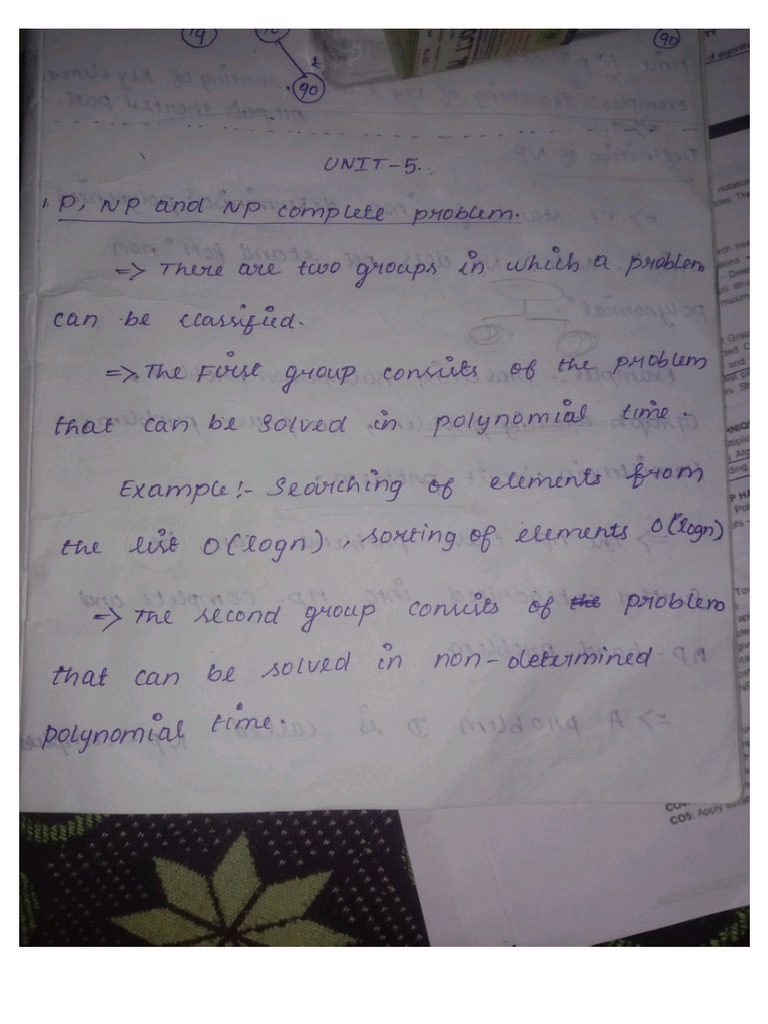 19
90
90
UNIT-5.
1. P, NP and NP complete problem.
=> There are two groups in which a problem
can be classified.
=> The First group consists of the problem
that can be solved in polynomial time.
Example!- Searching of elements from
the list O(logn), sorting of elements O(logn)
=> The second group consists of the problem
that can be solved in non-determined
polynomial time.
CO5: Apply